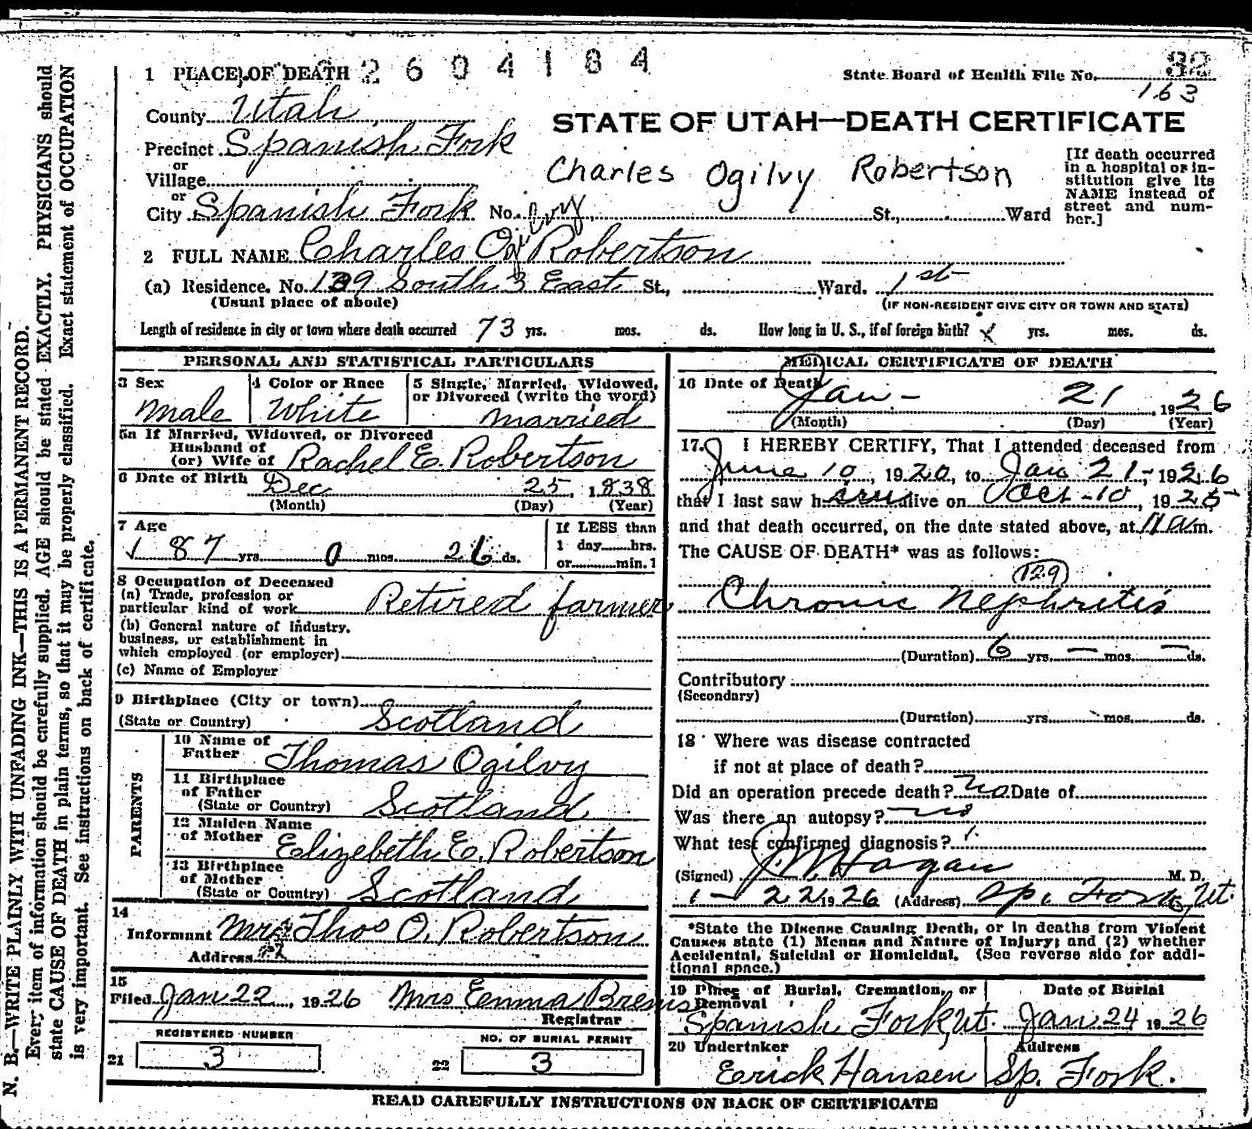 2604184
1 PLACE OF DEATH
State Board of Health File No. 32
163
County Utah
STATE OF UTAH—DEATH CERTIFICATE
Precinct Spanish Fork
or
Village
Charles Ogilvy Robertson
[If death occurred
in a hospital or in-
stitution give its
NAME instead of
street and num-
ber.]
or
City Spanish Fork No. St., Ward
Ogilvy
2 FULL NAME Charles O. Robertson
(a) Residence. No. 139 South 3 East St., Ward. 1st
(Usual place of abode)
(IF NON-RESIDENT GIVE CITY OR TOWN AND STATE)
Length of residence in city or town where death occurred 73 yrs. mos. ds. How long in U. S., if of foreign birth? x yrs. mos. ds.
PERSONAL AND STATISTICAL PARTICULARS
3 Sex
Male
4 Color or Race
White
5 Single, Married, Widowed,
or Divorced (write the word)
married
5a If Married, Widowed, or Divorced
Husband of
(or) Wife of Rachel E. Robertson
6 Date of Birth Dec 25, 1838
(Month) (Day) (Year)
7 Age
87 yrs. 0 mos. 26 ds.
If LESS than
1 day hrs.
or min.
8 Occupation of Deceased
(a) Trade, profession or
particular kind of work Retired farmer
(b) General nature of industry,
business, or establishment in
which employed (or employer)
(c) Name of Employer
9 Birthplace (City or town)
(State or Country) Scotland
PARENTS
10 Name of
Father Thomas Ogilvy
11 Birthplace
of Father
(State or Country) Scotland
12 Maiden Name
of Mother Elizebeth E. Robertson
13 Birthplace
of Mother
(State or Country) Scotland
14
Informant Mrs Thos O. Robertson
Address
15
Filed Jan 22, 1926 Mrs Emma Brems
Registrar
REGISTERED NUMBER
21 3
NO. OF BURIAL PERMIT
22 3
MEDICAL CERTIFICATE OF DEATH
16 Date of Death
Jan - 21, 1926
(Month) (Day) (Year)
17. I HEREBY CERTIFY, That I attended deceased from
June 10, 1920, to Jan 21-, 1926
that I last saw him alive on Oct-10, 1925
and that death occurred, on the date stated above, at 11 a m.
The CAUSE OF DEATH* was as follows:
129
Chronic Nephritis
(Duration) 6 yrs. — mos. — ds.
Contributory
(Secondary)
(Duration) yrs. mos. ds.
18 Where was disease contracted
if not at place of death?
Did an operation precede death? no Date of
Was there an autopsy? no
What test confirmed diagnosis?
(Signed) J.W. Hagan M. D.
1-22 1926 (Address) Sp. Fork, Ut.
*State the Disease Causing Death, or in deaths from Violent
Causes state (1) Means and Nature of Injury; and (2) whether
Accidental, Suicidal or Homicidal. (See reverse side for addi-
tional space.)
19 Place of Burial, Cremation, or
Removal
Spanish Fork, Ut.
Date of Burial
Jan. 24 1926
20 Undertaker
Erick Hansen
Address
Sp. Fork.
READ CAREFULLY INSTRUCTIONS ON BACK OF CERTIFICATE
N. B.—WRITE PLAINLY WITH UNFADING INK—THIS IS A PERMANENT RECORD.
Every item of information should be carefully supplied. AGE should be stated EXACTLY. PHYSICIANS should
state CAUSE OF DEATH in plain terms, so that it may be properly classified. Exact statement of OCCUPATION
is very important. See instructions on back of certificate.